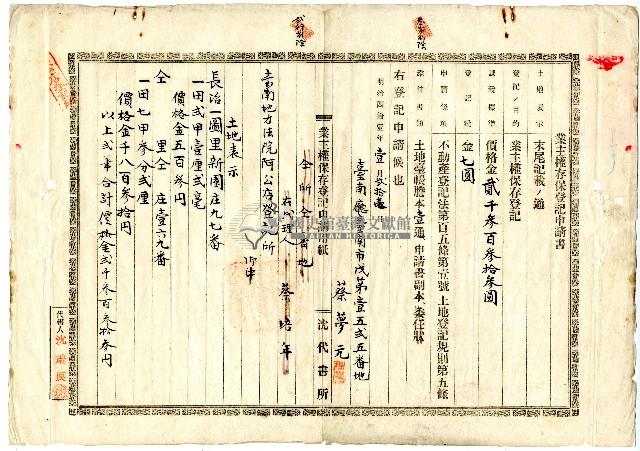 業主權保存登記申請書
土地表示 末尾記載ノ通
登記ノ目的 業主權保存登記
課稅標準 價格金貳千参百参拾参圓
登記稅 金七圓
申請條項 不動產登記法第百五條第壹號土地登記規則第五條
添付書類 土地臺帳謄本壹通、申請書副本、委任狀
右登記申請候也
明治四拾壹年壹月
臺南廳臺南市戊第壹五貳五番地
蔡夢元
業主權保存登記申請用紙
沈代書所
仝所仝番地
右代理人
蔡培年
臺南地方法院阿公店登記所
御中
土地表示
長治一圖里新園庄九七番
一田貳甲壹厘貳毫
價格金五百参円
仝 里仝 庄壹六九番
一田七甲参分貳厘
價格金千八百参拾円
以上貳筆合計價格金貳千参百参拾参円
代書人
國史館臺灣文獻館
TAIWAN HISTORICA